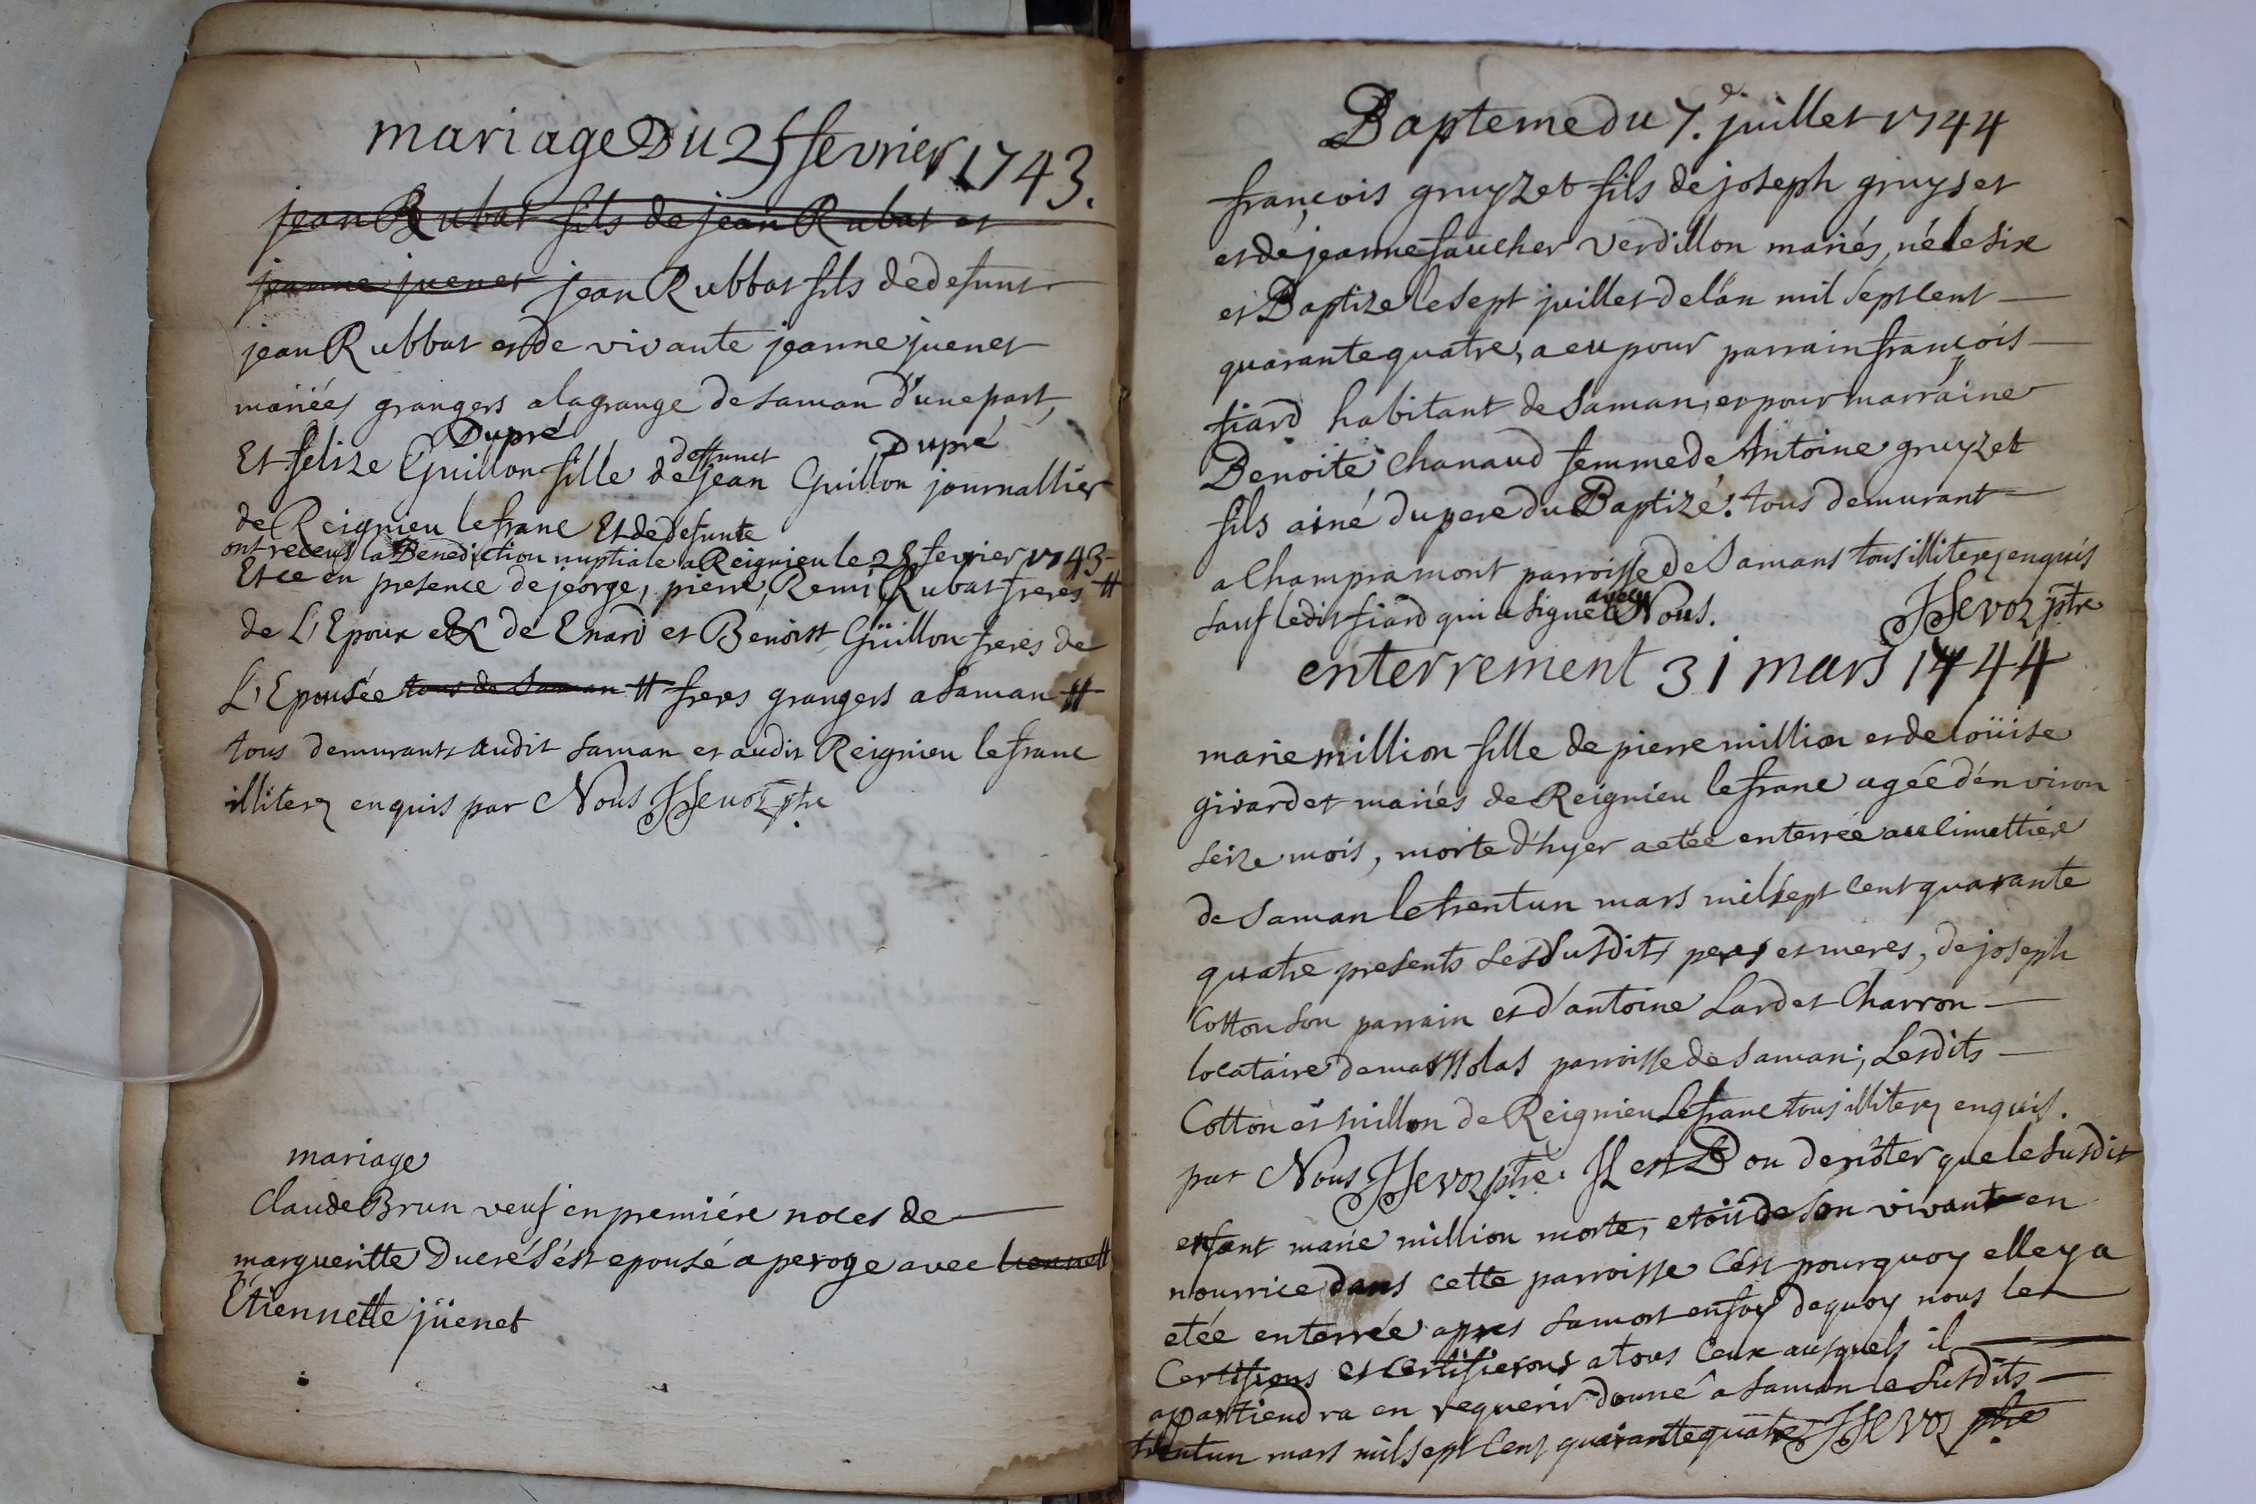 mariage Du 25 fevrier 1743.
jean Rubat fils de jean Rubat et
jeanne juenet jean Rubbat fils de defunt
jean Rubbat et de vivante jeanne juenet
mariées grangers a la grange de saman d'une part,
Dupré deffunct Dupré
Et felize Guillon fille de jean Guillon journallier
de Reignieu le franc Et de defunte
ont receus la Benediction nuptiale a Reignieu le 25 fevrier 1743
Et ce en presence de jeorge, pierre, Remi Rubat freres #
de L'Epoux et de Enard et Benoist Güillon freres de
L'Epousée tous de Saman # freres grangers a Saman #
tous demurants audit saman et audit Reignieu le franc
illiterez enquis par Nous ptre
mariage
Claude Brun veuf en premiére noces de
margueritte Ducré s'ést epousé a peroge avec
Etiennette jüenet
Bapteme du 7.e juillet 1744
françois gruyzet fils de joseph gruyset
et de jeanne faucher verdillon mariés, né le six
et Baptize le sept juillet de l'an mil sept cent
quarante quatre, a eu pour parrain françois
fiard habitant de Saman, et pour marraine
Benoite Chanaud femme de Antoine gruyzet
fils ainé du pere du Baptizé. tous demurant
a Champramont parroisse de Samans tous illiterez enquis
sauf ledit fiard qui a signé avec Nous. ptre
enterrement 31 mars 1744
marie million fille de pierre million et de loüise
girardet mariés de Reignieu le franc agée d'environ
seize mois, morte d'hyer a etée enterrée au cimettiére
de Saman le trent un mars mil sept cent quarante
quatre presents les susdits peres et meres, de joseph
Cotton son parrain et d'antoine Lardet Charron
locataire de massolas parroisse de Saman, Lesdits
Cotton et millon de Reignieu Lefranc tous illiterez enquis.
par Nous ptre. Il est Bon de nôter que le susdit
enfant marie million morte, etoit de son vivant en
nourrice dans cette parroisse C'est pourquoy elle y a
etée enterrée apres sa mort en foy de quoy nous le
Certifions et certifierons a tous Ceux ausquels il
apartiendra en requerir donné a Saman le susdits
trentun mars mil sept Cent quarante quatre ptre